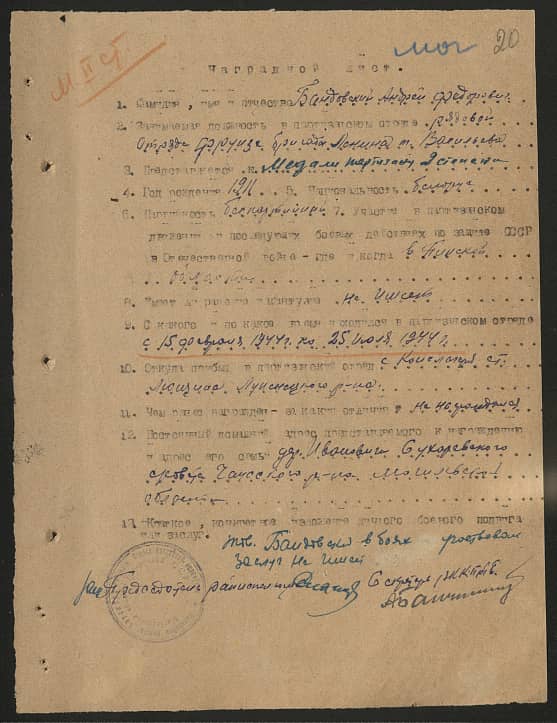 мог 20
М II ст.
Наградной лист.
1. Фамилия, имя и отчество Бандовский Андрей Федорович
2. Занимаемая должность в партизанском отряде рядовой
Отряда Фрунзе бригада Ленина т. Васильева
3. Представляется к Медали партизану 2 степени
4. Год рождения 1911 5. Национальность белорус
6. Партийность беспартийный 7. Участие в партизанском
движении и последующих боевых действиях по защите СССР
в Отечественной войне - где и когда в Пинской
области
8. Имеет ли ранения и контузии не имеет
9. С какого и по какое время находился в партизанском отряде
с 15 февраля 1944 г. по 25 июля 1944 г.
10. Откуда прибыл в партизанский отряд с ст.
Лунинецкого р-на.
11. Чем ранее награжден - за какие отличия не награждался
12. Постоянный домашний адрес представляемого к награждению
и адрес его семьи дер. Ивановичи Сухоревского
Чаусского р-на Могилевской
области
13. Краткое, конкретное изложение личного боевого подвига
или заслуг. тов. Бандовский в боях участвовал
заслуг не имеет
Председатель райисполкома Секретарь РК КП(б)Б